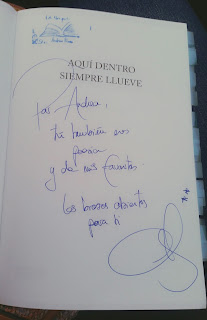 AQUÍ DENTRO
SIEMPRE LLUEVE
Andrea,
tú también eres
poesía
y de mis favoritas.
Los brazos abiertos
para ti
**